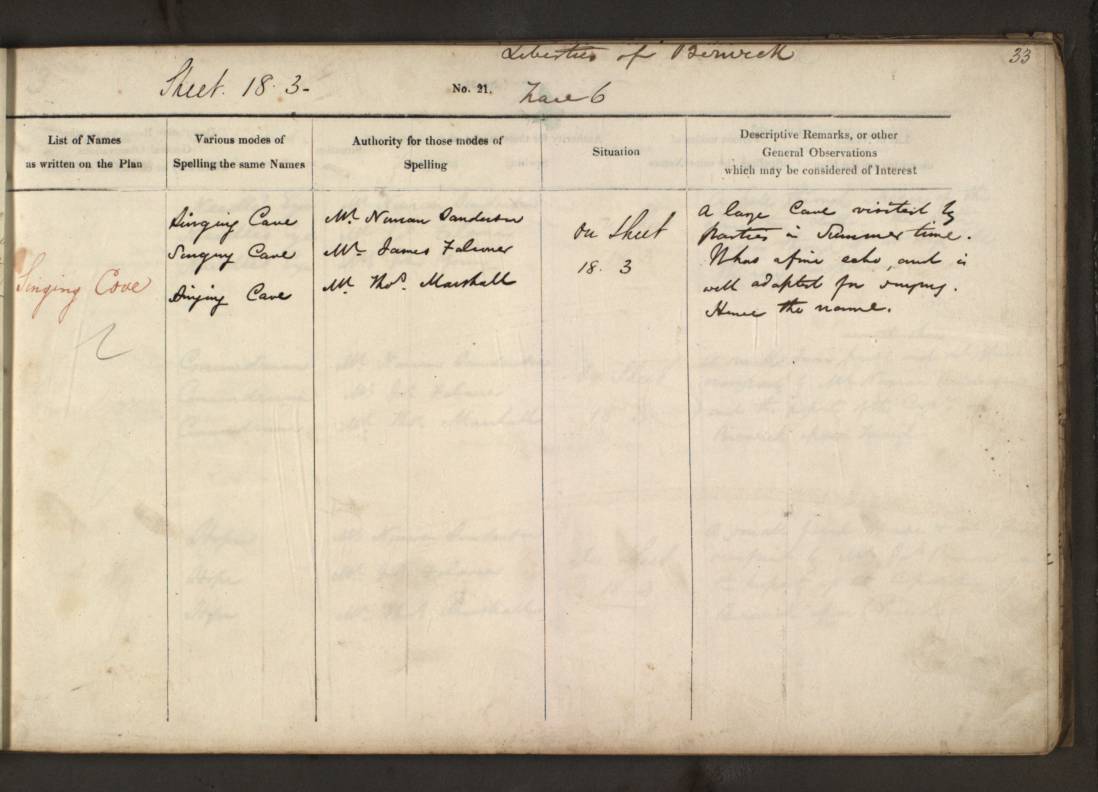 Liberties of Berwick
33
Sheet. 18. 3-
No. 21.
Trace 6
List of Names
as written on the Plan
Various modes of
Spelling the same Names
Authority for those modes of
Spelling
Situation
Descriptive Remarks, or other
General Observations
which may be considered of Interest
Singing Cove
Singing Cave
Singing Cave
Singing Cave
Mr. Numan Sanderson
Mr. James Falconer
Mr. Thos. Marshall
On Sheet
18. 3
A large Cave visited by
parties in Summer time.
It has a fine echo, and is
well adapted for singing.
Hence the name.